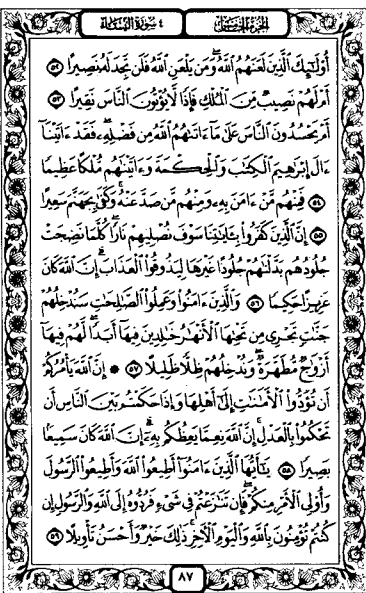 ٤ سورة النساء الجزء الخامس
أُوْلَٰٓئِكَ ٱلَّذِينَ لَعَنَهُمُ ٱللَّهُ ۖ وَمَن يَلْعَنِ ٱللَّهُ فَلَن تَجِدَ لَهُۥ نَصِيرًا ٥٢
أَمْ لَهُمْ نَصِيبٌ مِّنَ ٱلْمُلْكِ فَإِذًا لَّا يُؤْتُونَ ٱلنَّاسَ نَقِيرًا ٥٣
أَمْ يَحْسُدُونَ ٱلنَّاسَ عَلَىٰ مَآ ءَاتَىٰهُمُ ٱللَّهُ مِن فَضْلِهِۦ ۖ فَقَدْ ءَاتَيْنَآ
ءَالَ إِبْرَٰهِيمَ ٱلْكِتَٰبَ وَٱلْحِكْمَةَ وَءَاتَيْنَٰهُم مُّلْكًا عَظِيمًا
٥٤ فَمِنْهُم مَّنْ ءَامَنَ بِهِۦ وَمِنْهُم مَّن صَدَّ عَنْهُ ۚ وَكَفَىٰ بِجَهَنَّمَ سَعِيرًا
٥٥ إِنَّ ٱلَّذِينَ كَفَرُوا۟ بِـَٔايَٰتِنَا سَوْفَ نُصْلِيهِمْ نَارًا كُلَّمَا نَضِجَتْ
جُلُودُهُم بَدَّلْنَٰهُمْ جُلُودًا غَيْرَهَا لِيَذُوقُوا۟ ٱلْعَذَابَ ۗ إِنَّ ٱللَّهَ كَانَ
عَزِيزًا حَكِيمًا ٥٦ وَٱلَّذِينَ ءَامَنُوا۟ وَعَمِلُوا۟ ٱلصَّٰلِحَٰتِ سَنُدْخِلُهُمْ
جَنَّٰتٍ تَجْرِى مِن تَحْتِهَا ٱلْأَنْهَٰرُ خَٰلِدِينَ فِيهَآ أَبَدًا ۖ لَّهُمْ فِيهَآ
أَزْوَٰجٌ مُّطَهَّرَةٌ ۖ وَنُدْخِلُهُمْ ظِلًّا ظَلِيلًا ٥٧ ۞ إِنَّ ٱللَّهَ يَأْمُرُكُمْ
أَن تُؤَدُّوا۟ ٱلْأَمَٰنَٰتِ إِلَىٰٓ أَهْلِهَا وَإِذَا حَكَمْتُم بَيْنَ ٱلنَّاسِ أَن
تَحْكُمُوا۟ بِٱلْعَدْلِ ۚ إِنَّ ٱللَّهَ نِعِمَّا يَعِظُكُم بِهِۦٓ ۗ إِنَّ ٱللَّهَ كَانَ سَمِيعًۢا
بَصِيرًا ٥٨ يَٰٓأَيُّهَا ٱلَّذِينَ ءَامَنُوٓا۟ أَطِيعُوا۟ ٱللَّهَ وَأَطِيعُوا۟ ٱلرَّسُولَ
وَأُو۟لِى ٱلْأَمْرِ مِنكُمْ ۖ فَإِن تَنَٰزَعْتُمْ فِى شَىْءٍ فَرُدُّوهُ إِلَى ٱللَّهِ وَٱلرَّسُولِ إِن
كُنتُمْ تُؤْمِنُونَ بِٱللَّهِ وَٱلْيَوْمِ ٱلْءَاخِرِ ۚ ذَٰلِكَ خَيْرٌ وَأَحْسَنُ تَأْوِيلًا ٥٩
٨٧